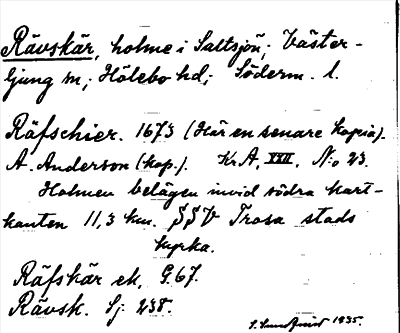 Rävskär, holme i Saltsjön; Väster-
ljung sn; Hölebo hd; Söderm. l.
Räfschier. 1673 (Här en senare kopia).
A. Anderson (kop.). Kr A, XXII, N:o 23.
Holmen belägen invid södra kart-
kanten 11,3 km. SSV Trosa stads
kyrka.
Räfskär ek, G.67.
Rävsk. Sj. 238.
1935.